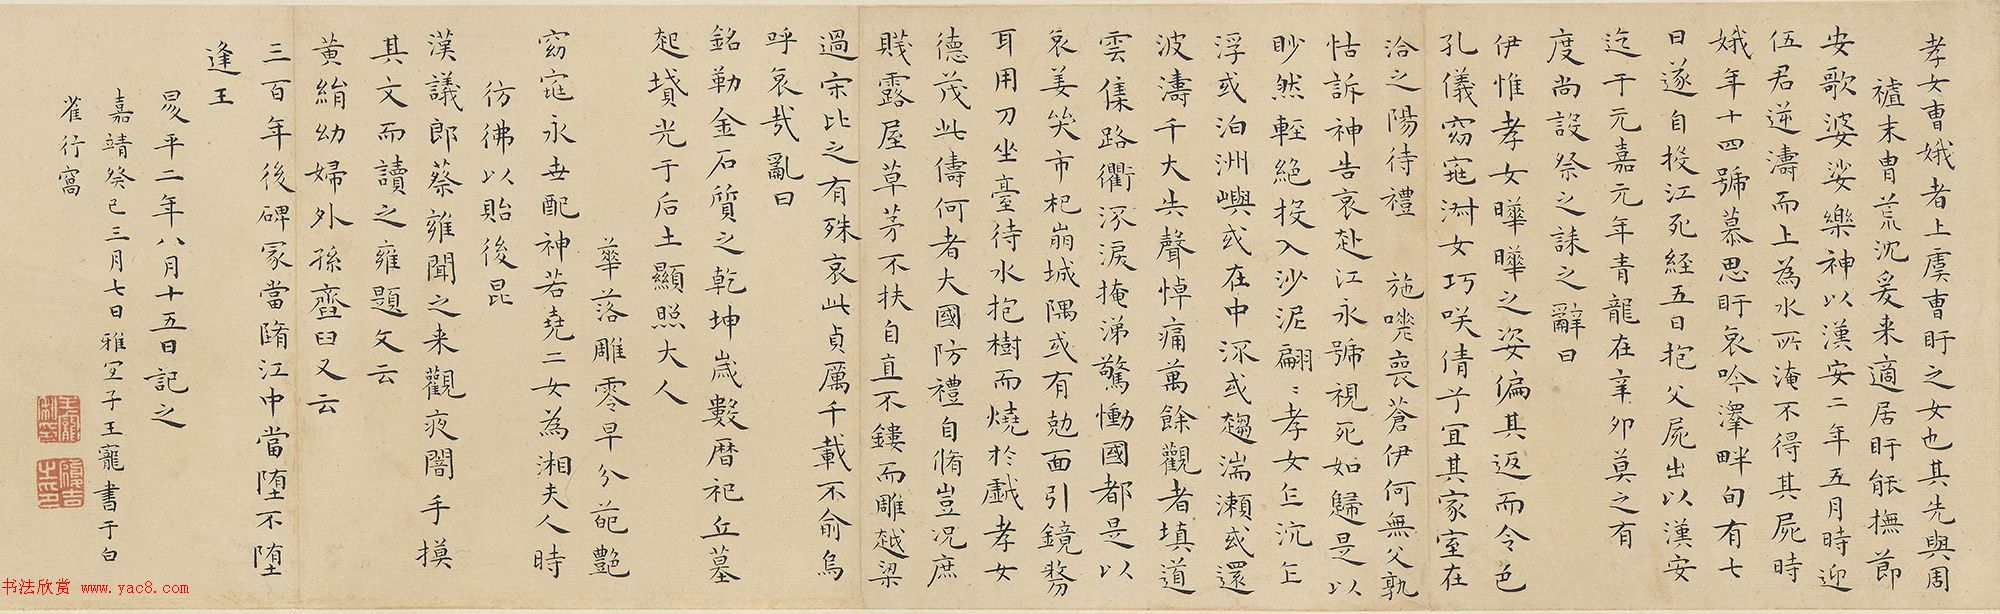 孝女曹娥者上虞曹盱之女也其先與周
禃末胄荒沈爰来適居盱能撫節
安歌婆娑樂神以漢安二年五月時迎
伍君逆濤而上為水所淹不得其屍時
娥年十四號慕思盱哀吟澤畔旬有七
日遂自投江死経五日抱父屍出以漢安
迄于元嘉元年青龍在辛卯莫之有
度尚設祭之誄之辭曰
伊惟孝女曄曄之姿偏其返而令色
孔儀窈窕淑女巧咲倩兮宜其家室在
洽之陽待禮 施嗟喪蒼伊何無父孰
怙訴神告哀赴江永號視死如歸是以
眇然輕絶投入沙泥翩〻孝女乍沉乍
浮或泊洲嶼或在中流或趨湍瀬或還
波濤千夫失聲悼痛萬餘觀者填道
雲集路衢流淚掩涕驚慟國都是以
哀姜哭市杞崩城隅或有尅面引鏡剺
耳用刀坐臺待水抱樹而燒於戯孝女
德茂此儔何者大國防禮自脩豈况庶
賤露屋草茅不扶自直不鏤而雕越梁
過宋比之有殊哀此貞厲千載不俞烏
呼哀哉亂曰
銘勒金石質之乾坤歳數曆祀丘墓
起墳光于后土顯照大人
華落雕零早分葩艷
窈窕永世配神若堯二女為湘夫人時
彷彿以貽後昆
漢議郎蔡雍聞之来觀夜闇手摸
其文而讀之雍題文云
黄絹幼婦外孫齏臼又云
三百年後碑冢當隋江中當堕不堕
逢王
昜平二年八月十五日記之
嘉靖癸巳三月七日雅宜子王寵書于白
雀行窩
王寵私印
履吉之印
书法欣赏 www.yac8.com